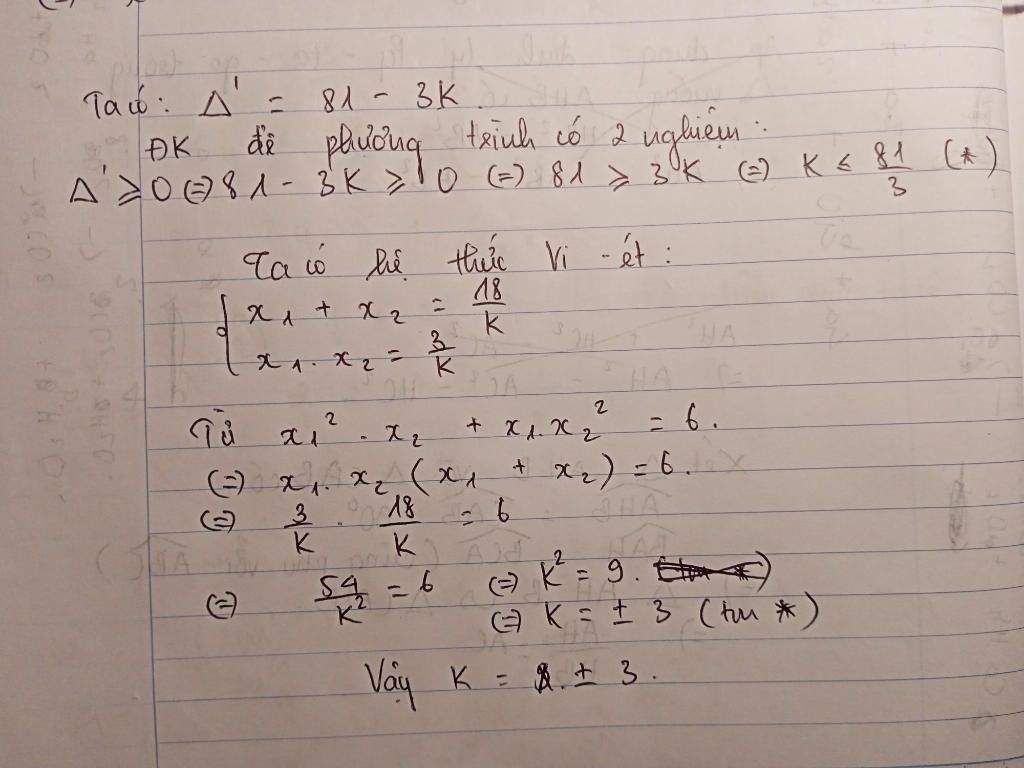 Ta có: Δ' = 81 - 3K.
ĐK để phương trình có 2 nghiệm:
Δ' ≥ 0 (=) 81 - 3K ≥ 0 (=) 81 ≥ 3K (=) K ≤ 81/3 (*)
Ta có hệ thức Vi-ét:
{ x₁ + x₂ = 18/K
x₁. x₂ = 3/K
Từ x₁². x₂ + x₁. x₂² = 6.
(=) x₁. x₂ (x₁ + x₂) = 6.
(=) 3/K . 18/K = 6
(=) 54/K² = 6 (=) K² = 9.
(=) K = ± 3 (tm *)
Vậy K = ± 3.